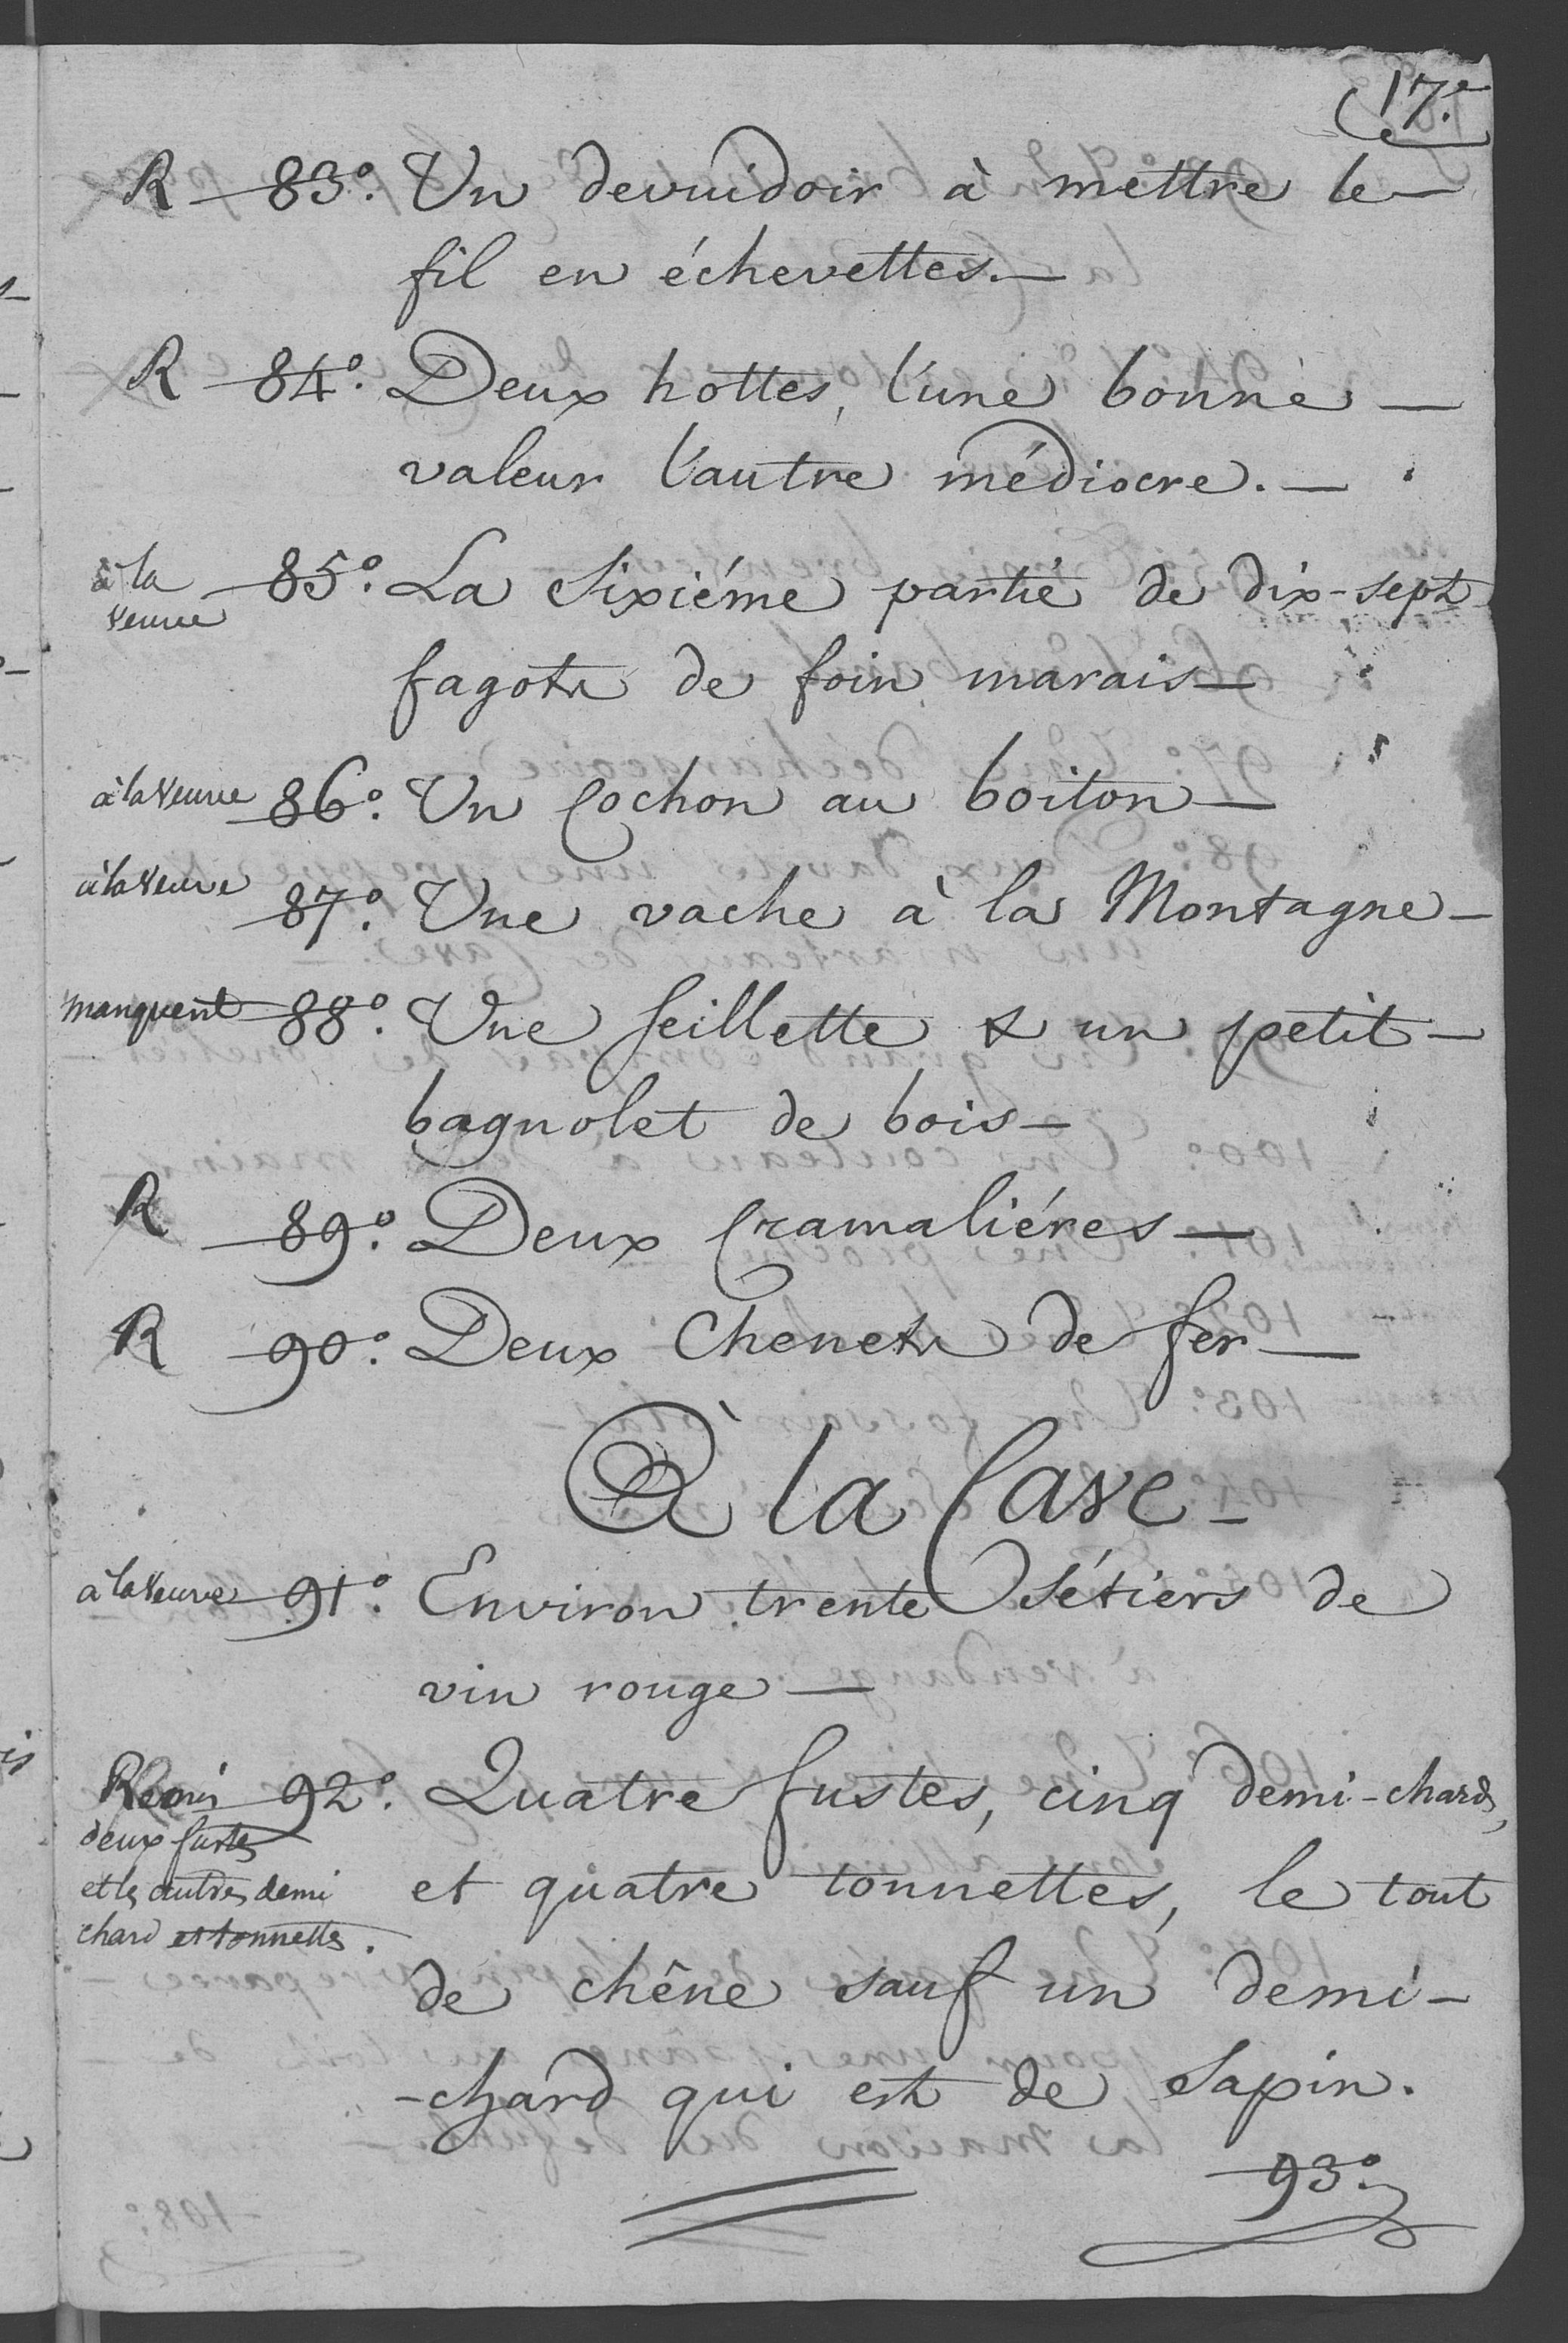 17.e
R 83.° Un devuidoir à mettre le
fil en échevettes.
R 84.° Deux hottes, l'une bonne
valeur l'autre médiocre.
à la veuve 85.° La sixiéme partie de dix-sept
fagots de foin marais
à la veuve 86.° Un Cochon au boiton
à la veuve 87.° Une vache à la Montagne
manquent 88.° Une seillette & un petit
bagnolet de bois
R 89.° Deux Cramaliéres
R 90.° Deux Chenets de fer
À la Cave
à la veuve 91.° Environ trente sétiers de
vin rouge
Remis 92.° Quatre fustes, cinq demi-chards,
deux fustes
et les autres demi
chard et tonnettes.
et quatre tonnettes, le tout
de chêne sauf un demi-
-chard qui est de sapin.
93.°